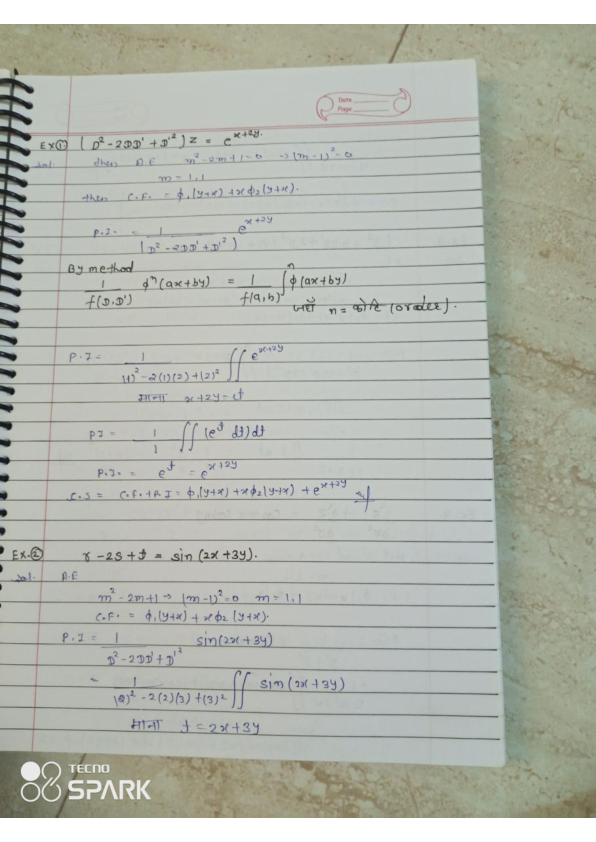 Date
Page
Ex① (D²-2DD'+D'²)z = e^(x+2y).
Sol. then A.E m²-2m+1=0 ⇒ (m-1)²=0
m=1,1
then C.F. = φ₁(y+x)+xφ₂(y+x).
P.I. = 1/(D²-2DD'+D'²) e^(x+2y)
By method
1/f(D,D') φⁿ(ax+by) = 1/f(a,b) ∫ⁿ φ(ax+by)
जहाँ n = कोटि (order).
P.I = 1/((1)²-2(1)(2)+(2)²) ∬ e^(x+2y)
माना x+2y=t
P.I = 1/1 ∬ (e^t dt)dt
P.I. = e^t = e^(x+2y)
C.S = C.F.+P.I = φ₁(y+x)+xφ₂(y+x)+e^(x+2y)
Ex.② r-2s+t = sin(2x+3y).
Sol. A.E
m²-2m+1 ⇒ (m-1)²=0 m=1,1
C.F. = φ₁(y+x)+xφ₂(y+x).
P.I = 1/(D²-2DD'+D'²) sin(2x+3y)
= 1/((2)²-2(2)(3)+(3)²) ∬ sin(2x+3y)
माना t=2x+3y
TECNO
SPARK